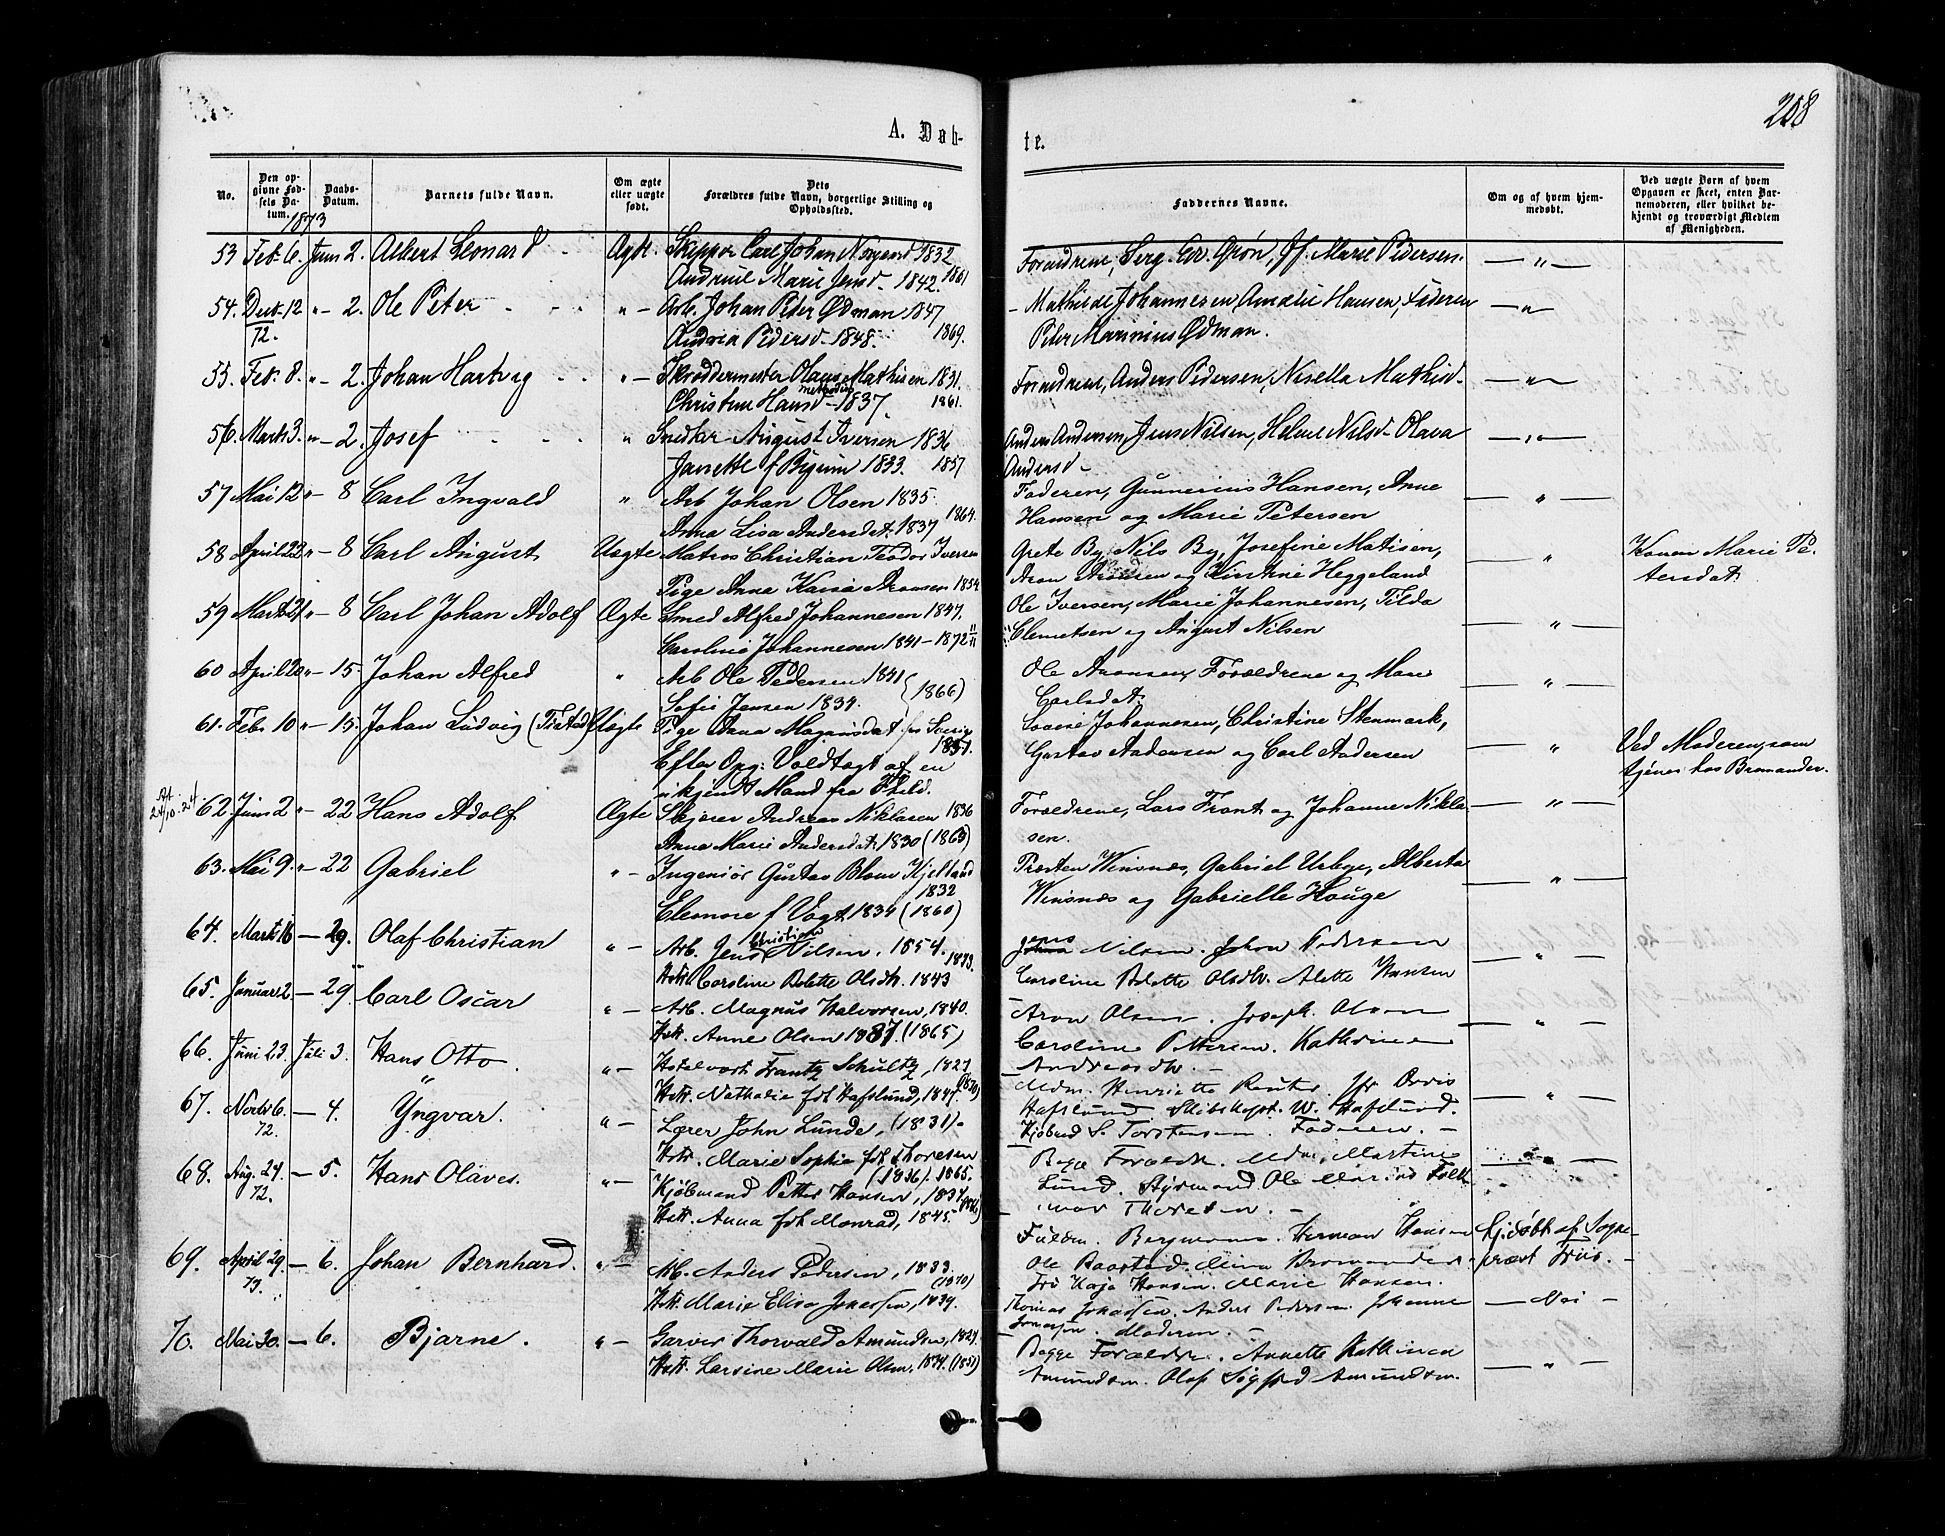 208
A. Døb-
te.
No.
Den op-
givne Fød-
sels Da-
tum.
Daabs-
Datum.
Barnets fulde Navn.
Om ægte
eller uægte
født.
Dets
Forældres fulde Navn, borgerlige Stilling og
Opholdssted.
Faddernes Navne.
Om og af hvem hjem-
medøbt.
Ved uægte Børn af hvem
Opgaven er skeet, enten Bar-
nemoderen, eller hvilket be-
kjendt og troværdigt Medlem
af Menigheden.
1873
53 Feb. 6. Juni 2. Albert Leonard Ægte. Skipper Carl Johan 1832 Forældrene, Serg. Edv. Grøn, Jf. Marie Pedersen. — " —
Marie Jensd. 1842. 1861
54. Decb. 12 "- 2. Ole Peter "- Arb. Johan Peter Ødman 1847 - Mathilde Johannesen Amalie Hansen, Faderen — " —
72. Andrea Pedersd. 1848. 1869. Peter Marinius Ødman.
55. Feb. 8. "- 2. Johan Hartvig "- Skræddermester Olaus Mathisen 1831. Forældrene, Anders Pedersen, Mathisd. — " —
Christine Hansd. 1837. 1861.
56. Marts 3. "- 2. Josef " August Iversen 1836 Anders Andersen, Jens Nilsen, Helene Nilsd. Olava — " —
Janette f. 1833. 1857 Andersd.
57 Mai 12 "- 8 Carl Ingvald " Arb Johan Olsen 1835. Faderen, Gunnerius Hansen, Anne — " —
Anna Lisa Andersdat. 1837 1864. Hansen og Marie Petersen
58 April 22 "- 8 Carl August Uægte Matros Christian Teodor Iversen Grete By, Nils By, Josefine Matisen, " Konen Marie Pe-
Pige Anna Kaisa Aronsen 1854 Aron Aronsen og Kirstine Heggeland tersdat.
59 Marts 21 "- 8 Carl Johan Adolf Ægte Smed Alfred Johannesen 1847. Ole Iversen, Marie Johannesen, Tilda — " —
Caroline Johannesen 1841 - 1872 Clemetsen og August Nilsen
60 April 20 "- 15. Johan Alfred " Arb Ole Pedersen 1841 (1866) Ole Aronsen, Forældrene og Marie — " —
Sofie Jensen 1834. Carlsdat.
61. Febr 10 "- 15. Johan Ludvig (Tistad) Uægte Pige Anna Magnusdat fra Sverig Lovise Johannesen, Christine Stenmark, " Ved Moderen, som
1851. Gustav Andersen og Carl Andersen tjener hos Bromander.
Efter Opg: Voldtagt af en
ukjendt Mand fra Fhald.
24/10.24 62. Juni 2 "- 22 Hans Adolf Ægte Andreas Niklasen 1836 Forældrene, Lars Frant og Johanne Nikla- — " —
Anna Marie Andersdat. 1830 (1863) sen.
63. Mai 9. "- 22 Gabriel "- Ingeniør Gustav Blom Kjelland Præsten Winsnæs, Gabriel Urbye, Alberta — " —
1832 Winsnæs og Gabrielle Hauge
Eleonore f Vogt 1834 (1860)
64. Marts 16 — 29. Olaf Christian "- Arb. Jens Christian Nilsen, 1854. Jens Nilsen. Johan Pedersen — " —
Hst. Caroline Bolette Olsdtr. 1843 1873. Caroline Bolette Olsdtr. Alette Hansen
65. Januar 2 — 29. Carl Oscar "- Arb. Magnus Halvorsen, 1840. Aron Olsen. Joseph. Olsen — " —
Hst. Anne Olsen 1837. (1865) Caroline Pettersen. Kathrine
66. Juni 23. Juli 3. Hans Otto. "- Hotelvært Frantz Schultz, 1827 Andreasdtr. —
Hst. Nathalie fdt Hafslund, 1847. (1870) Mdm. Henriette Reuter. Jfr Doris — " —
67. Novbr 6. — 4. Yngvar. "- Lærer John Lunde, (1831) Hafslund. Skibskapt. W. Hafslund.
72. Hst. Marie Sophie fdt Thoresen Kjøbmd S. Torstensen. Faderen. —
(1836). 1865. Begge Forældr. Mdm. Martine
68. Aug. 24. — 5. Hans Olaves. "- Kjøbmand Petter Hansen, 1837. Lund. Styrmand Ole
72. Hst. Anna fdt Monrad, 1845. Thoresen. —
Bergmann. Herman Hansen Hj.døbt af Sogne-
69. April 29. — 6. Johan Bernhard. "- Arb. Anders Pedersen, 1833. Ole Baastad. Mina Bromander. præst Friis. —
73. (1870) Fru Kaja Hansen. Marie Hansen.
Hst. Marie Elisa Jonassen, 1839. Thomas Jonassen. Anders Pedersen. Johanne — Nei —
Jonassen. Moderen. —
70. Mai 30. — 6. Bjarne. "- Garver Thorvald Amundsen, 1827. Begge Forældr. Annette Kathinea — " —
Hst. Larsine Marie Olsen. 1834. (1857) Amundsen. Olaf Sigfred Amundsen.